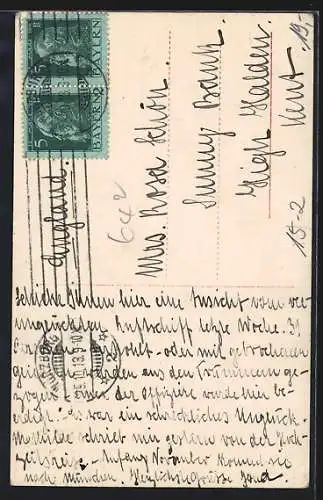 BAYERN
5
BAYERN
5
England.
Mrs. Rosa Schön.
Sunny Bank
High Halden
Kent.
19-
15-2
642
schicke Ihnen hier eine Ansicht vom ver-
unglückten Luftschiff letzte Woche. 31
oder mit gebrochenen
wurden aus den Trümmern ge-
zogen der Offiziere wurde hier be-
erdigt. Es war ein schreckliches Unglück.
Mathilde schrieb mir gestern von der Hoch-
zeitsreise. Anfang November kommen sie
nach München. Herzliche Grüsse